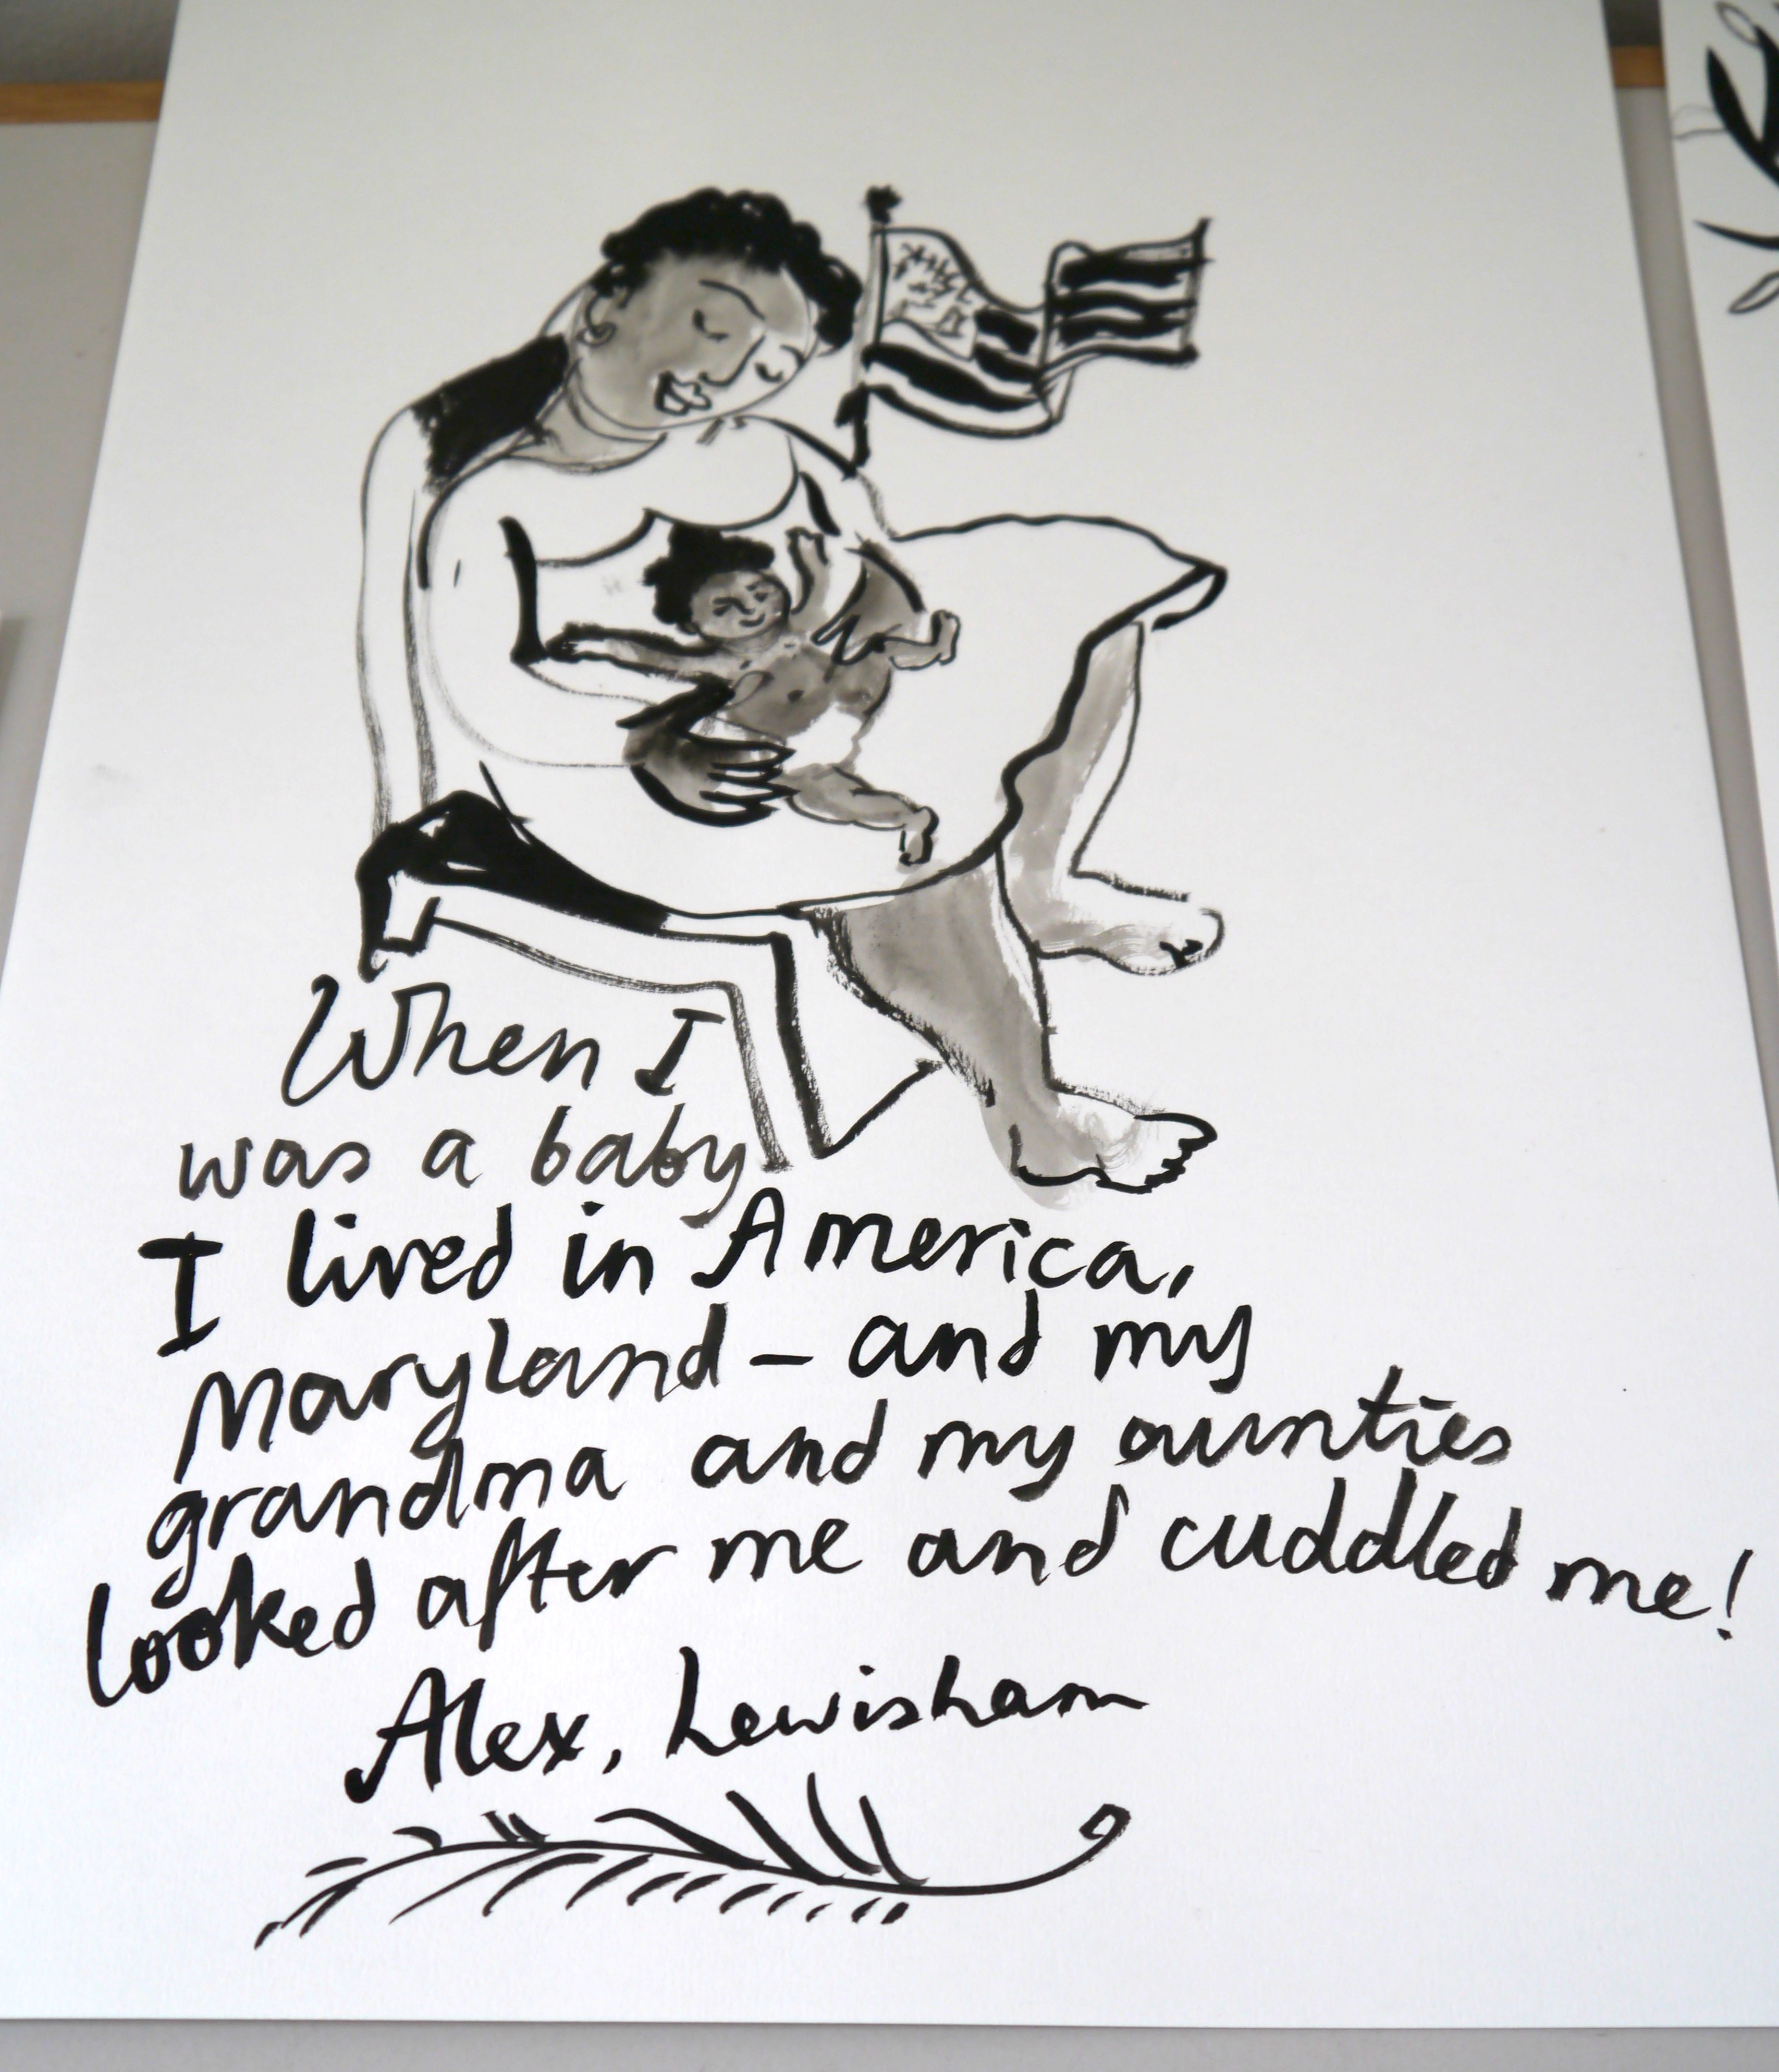 When I
was a baby
I lived in America,
Maryland – and my
grandma and my aunties
looked after me and cuddled me!
Alex, Lewisham